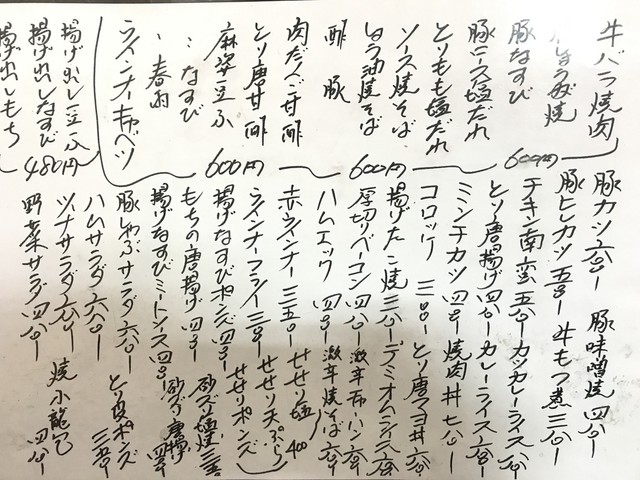 牛バラ焼肉
豚しょうが焼
豚なすび
豚ロース塩だれ
とりもも塩だれ
ソース焼そば
しょう油焼そば
酢豚
肉だんご甘酢
とり唐甘酢
麻婆豆ふ
〃なすび
〃春雨
ウインナーキャベツ
600円
600円
600円
揚げ出し豆ふ
揚げ出しなすび
揚げ出しもち
480円
豚カツ 六八〇ー
豚味噌焼 四八〇ー
豚ヒレカツ 五八〇ー
牛もつ煮 三八〇ー
チキン南蛮 五八〇ー
カツカレーライス 八八〇ー
とり唐揚げ 四八〇ー
カレーライス 六八〇ー
ミンチカツ 四八〇ー
焼肉丼 七八〇ー
コロッケ 三〇〇ー
とり唐マヨ丼 六八〇ー
揚げたこ焼 三八〇ー
デミオムライス 六八〇ー
厚切りベーコン 四八〇ー
激辛チャーハン 六八〇ー
ハムエッグ 四八〇ー
激辛焼そば 六八〇ー
赤ウインナー 三五〇ー
せせり塩
ウインナーフライ 三八〇ー
せせり天ぷら
揚げなすびポンズ 四八〇ー
せせりポンズ
400
もちの唐揚げ 四八〇ー
砂ズリ塩焼
揚げなすびミートソース 四八〇ー
砂ズリ唐揚げ
豚しゃぶサラダ 六八〇ー
とり皮ポンズ
ハムサラダ 六八〇ー
ツナサラダ 六八〇ー
焼小龍包 四八〇ー
野菜サラダ 四八〇ー